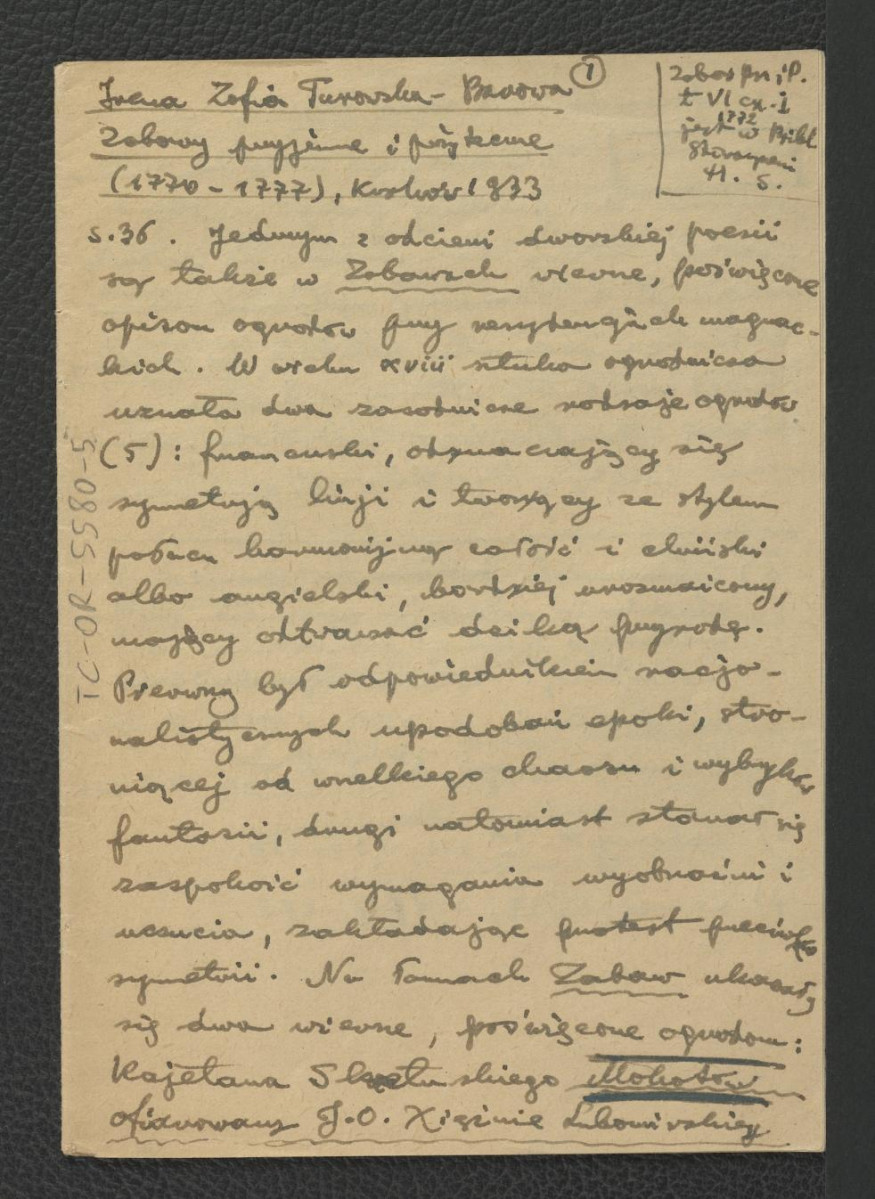 Irena Zofia Turowska-Barowa
1
Zabawy przyjemne i pożyteczne
(1770-1777), Kraków 1933
Zabaw prz. i P.
t VI cz. I
1772
jest w Bibl
H. S.
s. 36. Jednym z odcieni dworskiej poezji
są także w Zabawach wiersze, poświęcone
opisom ogrodów przy rezydencjach magnac-
kich. W wieku XVIII sztuka ogrodnicza
uznała dwa zasadnicze rodzaje ogrodów
(5): francuski, odznaczający się
symetrją linji i tworzący ze stylem
pałacu harmonijną całość i chiński
albo angielski, bardziej urozmaicony,
mający odtwarzać dziką przyrodę.
Pierwszy był odpowiednikiem racjo-
nalistycznych upodobań epoki, stro-
niącej od wszelkiego chaosu i wybryków
fantazji, drugi natomiast starał się
zaspokoić wymagania wyobraźni i
uczucia, zakładając protest przeciwko
symetrii. Na łamach Zabaw ukazały
się dwa wiersze, poświęcone ogrodom:
Kajetana Skrzetuskiego Mokotów
ofiarowany J.O. Xiężnie Lubomirskiej
TC-OR-5580-5